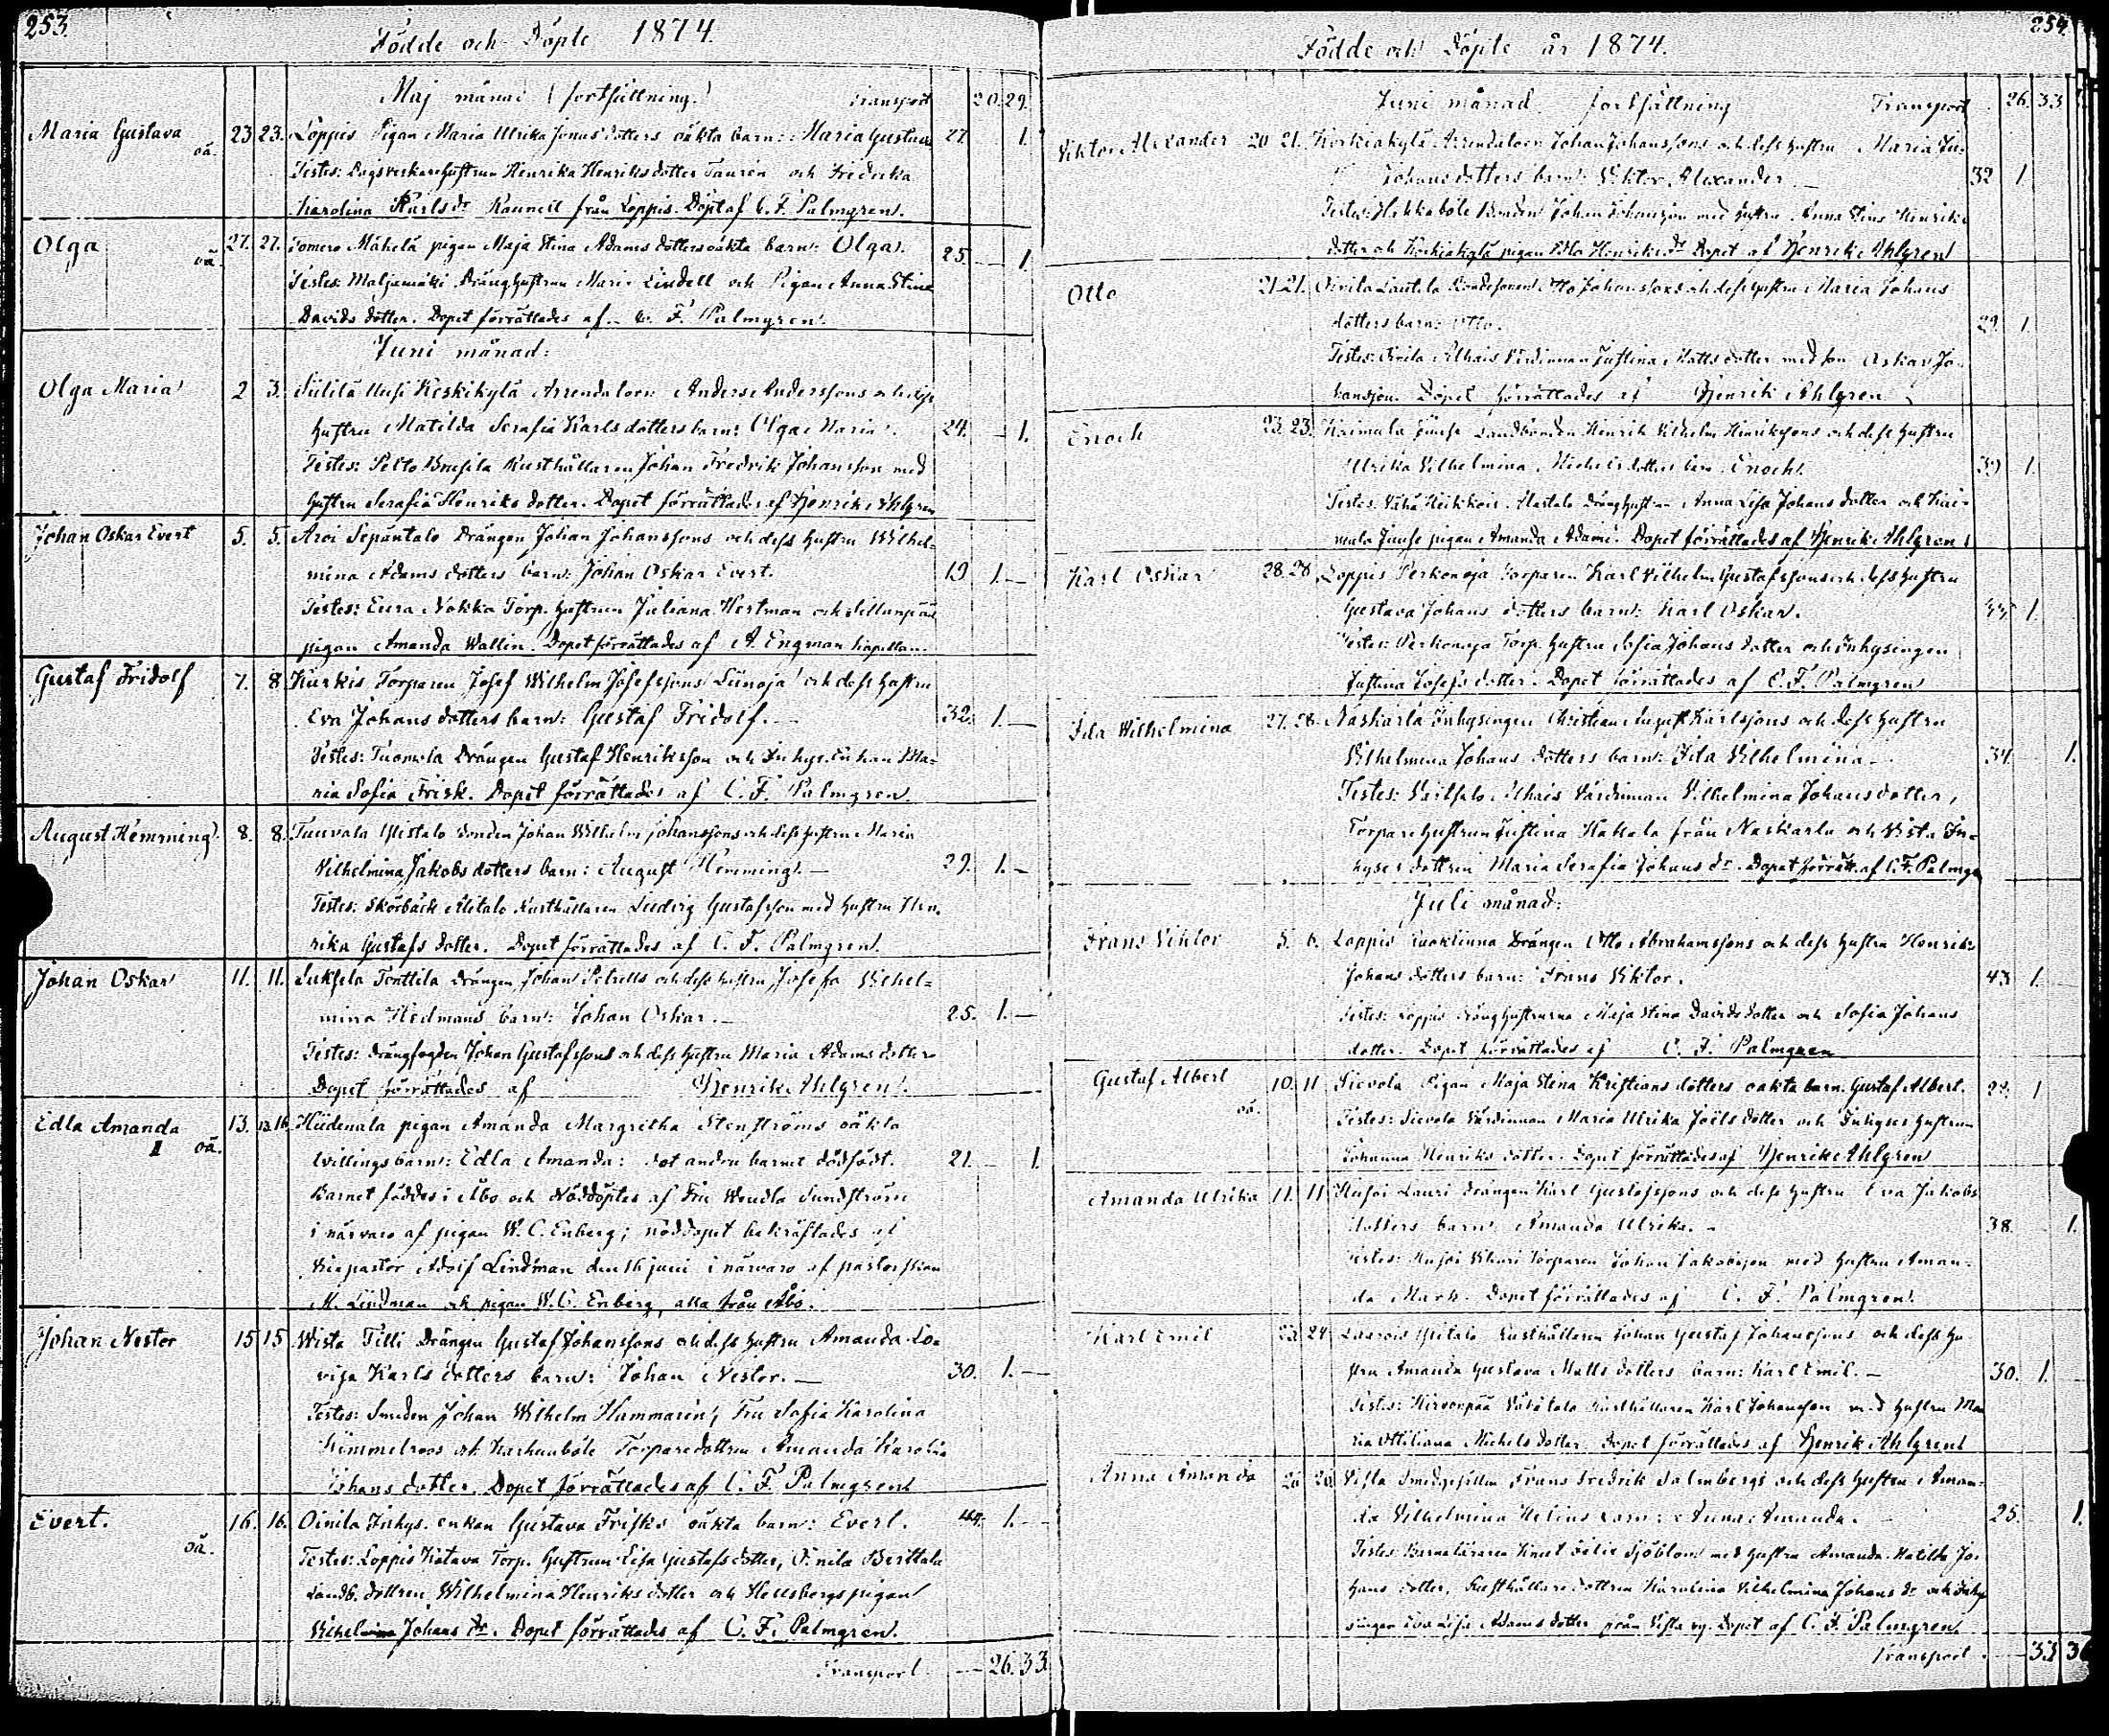 253.
Födde och Döpte 1874.
Maj månad (fortsättning.) Transport 20. 29.
Maria Gustava oä. 23 23. Loppis Pigan Maria Ulrika Jonas dotters oäkta barn: Maria Gustava 27. 1.
Testes: Dagsverkarehustrun Henrika Henriksdotter Taurén och Fredrika
Karolina Karls dr Rauneil från Loppis. Döpt af C. F. Palmgren.
Olga oä. 27. 27. Somero Mäkelä pigan Maja Stina Adams dotters oäkta barn: Olga. 25. 1.
Testes: Maljamäki Dränghustrun Maria Lindell och Pigan Anna Stina
Davids dotter. Dopet förrättades af C. F. Palmgren.
Juni månad:
Olga Maria 2 3. Keskikylä Arrendatorn Anders Anderssons och dess
hustru Matilda Serafia Karls dotters barn: Olga Maria. 24. 1.
Testes: Pelto Brusila Rusthållaren Johan Fredrik Johansson med
hustru Serafia Henriks dotter. Dopet förrättades af Henrik Ahlgren
Johan Oskar Evert 5. 5. Aroi Sepäntalo Drängen Johan Johanssons och dess hustru Wilhel=
mina Adams dotters barn: Johan Oskar Evert. 19 1.—
Testes: Eura Nokka Torp. hustrun Juliana Hertman och Sillanpää
pigan Amanda Wallin. Dopet förrättades af A. Engman Kapellan.
Gustaf Fridolf 7. 8 Kurkis Torparen Josef Wilhelm Josefssons Siinoja och dess hustru
Eva Johans dotters barn: Gustaf Fridolf.— 32. 1.—
Testes: Tuomola Drängen Gustaf Henriksson och Inhys. Enkan Ma=
ria Sofia Frisk. Dopet förrättades af C. F. Palmgren.
August Hemming 8. 8. Tuuvala Ylistalo Bonden Johan Wilhelm Johanssons och dess hustru Maria
Vilhelmina Jakobs dotters barn: August Hemming.— 29. 1.—
Testes: Skörbäck Alitalo Rusthållaren Ludvig Gustafsson med hustru Hen=
rika Gustafs dotter. Dopet förrättades af C. F. Palmgren.
Johan Oskar 11. 11. Suksela Tonttila Drängen Johan Petrells och dess hustru Josefa Vilhel=
mina Hedmans barn: Johan Oskar.— 25. 1.—
Testes: Drängfogden Johan Gustafssons och dess hustru Maria Adams dotter
Dopet förrättades af Henrik Ahlgren.
Edla Amanda oä. 13. 13.16. Hiidenala pigan Amanda Margretha Stenströms oäkta
tvillingsbarn: Edla Amanda: det andra barnet dödfödt. 21. 1.
Barnet föddes i Åbo och Nöddöptes af Fru Wendla Sundström
i närvaro af pigan W. C. Enberg; nöddopet bekräftades af
Vicepastor Adolf Lindman den 16 juni i närvaro af pastorskan
M. Lindman och pigan W. C. Enberg, alla från Åbo.
Johan Nestor 15 15 Wista Tilli Drängen Gustaf Johanssons och dess hustru Amanda Lo=
visa Karls dotters barn: Johan Nestor.— 30. 1.—
Testes: Smeden Johan Wilhelm Hammarén, Fru Sofia Karolina
Himmelroos och Karhunböle Torparedottren Amanda Karolina
Johans dotter. Dopet förrättades af C. F. Palmgren
Evert. oä. 16. 16. Oinila Inhys. enkan Gustava Frisks oäkta barn: Evert. 44. 1.—
Testes: Loppis Katava Torp. hustrun Lisa Gustafs dotter, Oinila Brittala
Landb. dottren Wilhelmina Henriks dotter och Hellsbergs pigan
Vilhelmina Johans dr. Dopet förrättades af C. F. Palmgren.
Transport — 26. 33.
254
Födde och Döpte år 1874.
Juni månad fortsättning Transport 26. 33
Viktor Alexander 20 21. Korkiakylä Arrendatorn Johan Johanssons och dess hustru Maria
Johans dotters barn: Viktor Alexander.— 32 1
Testes: Hakkaböle Bonden Johan Johansson med hustru Anna Stina Henriks
dotter och Korkiakylä pigan Edla Henriks dr Dopet af Henrik Ahlgren
Otto 21. 21. Oinila Lautila Bondesonen Otto Johanssons och dess hustru Maria Johans
dotters barn: Otto. 29. 1.
Testes: Oinila Alhais Värdinnan Justina Matts dotter med son Oskar Jo=
hansson. Dopet förrättades af Henrik Ahlgren
Enoch 23. 23. Kaimala Junse Landbonden Henrik Vilhelm Henrikssons och dess hustru
Ulrika Vilhelmina Michels dotters barn Enoch. 39 1.
Testes: Vähä Heikkois Alastalo Dränghustrun Anna Lisa Johans dotter och Kai=
mala Junse pigan Amanda Adams. Dopet förrättades af Henrik Ahlgren
Karl Oskar 28. 28 Loppis Perkonoja Torparen Karl Vilhelm Gustafssons och dess hustru
Gustava Johans dotters barn: Karl Oskar. 1.
Testes: Perkonoja Torp. hustru Sofia Johans dotter och Inhysingen
Justina Josefs dotter. Dopet förrättades af C. F. Palmgren
Ida Wilhelmina 27. 28. Naskarla Inhysingen Christian August Karlssons och dess hustru
Vilhelmina Johans dotters barn: Ida Vilhelmina.— 34 1.
Testes: Alhais Värdinnan Vilhelmina Johans dotter,
Torpare hustrun Justina Hakala från Naskarla och Vista In=
hyses dottren Maria Serafia Johans dr. Dopet förrätt. af C. F. Palmgr
Juli månad:
Frans Viktor 5. 6. Loppis Drängen Otto Abrahamssons och dess hustru Henrika
Johans dotters barn: Frans Viktor. 43 1.
Testes: Loppis dränghustrurna Maja Stina Davids dotter och Sofia Johans
dotter. Dopet förrättades af C. F. Palmgren
Gustaf Albert oä. 10. 11 Sievola Pigan Maja Stina Kristians dotters oäkta barn: Gustaf Albert. 1
Testes: Sievola Värdinnan Maria Ulrika Joëls dotter och Inhyses hustrun
Johanna Henriks dotter. Dopet förrättades af Henrik Ahlgren
Amanda Ulrika 11. 11 Lauri Drängen Karl Gustafssons och dess hustru Eva Jakobs
dotters barn: Amanda Ulrika.— 38. 1.
Testes: Torparen Johan Jakobsson med hustru Aman=
da Mark. Dopet förrättades af C. F. Palmgren.
Karl Emil 23. 24 Laurois Ylitalo Rusthållaren Johan Gustaf Johanssons och dess hu=
stru Amanda Gustava Matts dotters barn: Karl Emil.— 30. 1.
Testes: Hirvonpää Vähätalo Rusthållaren Karl Johansson med hustru Ma
ria Ottiliana Michels dotter Dopet förrättades af Henrik Ahlgren
Anna Amanda 26 26. Vista Smedgesällen Frans Fredrik Salmbergs och dess hustru Aman=
da Vilhelmina Helins barn: Anna Amanda. 25. 1.
Testes: Barnaläraren Knut Felix Sjöblom med hustru Amanda Matilda Jo=
hans dotter, Rusthållare dottren Karolina Vilhelmina Johans dr och Inhy
singen Eva Lisa Adams dotter från Vista by. Dopet af C. F. Palmgren
Transport 33 3